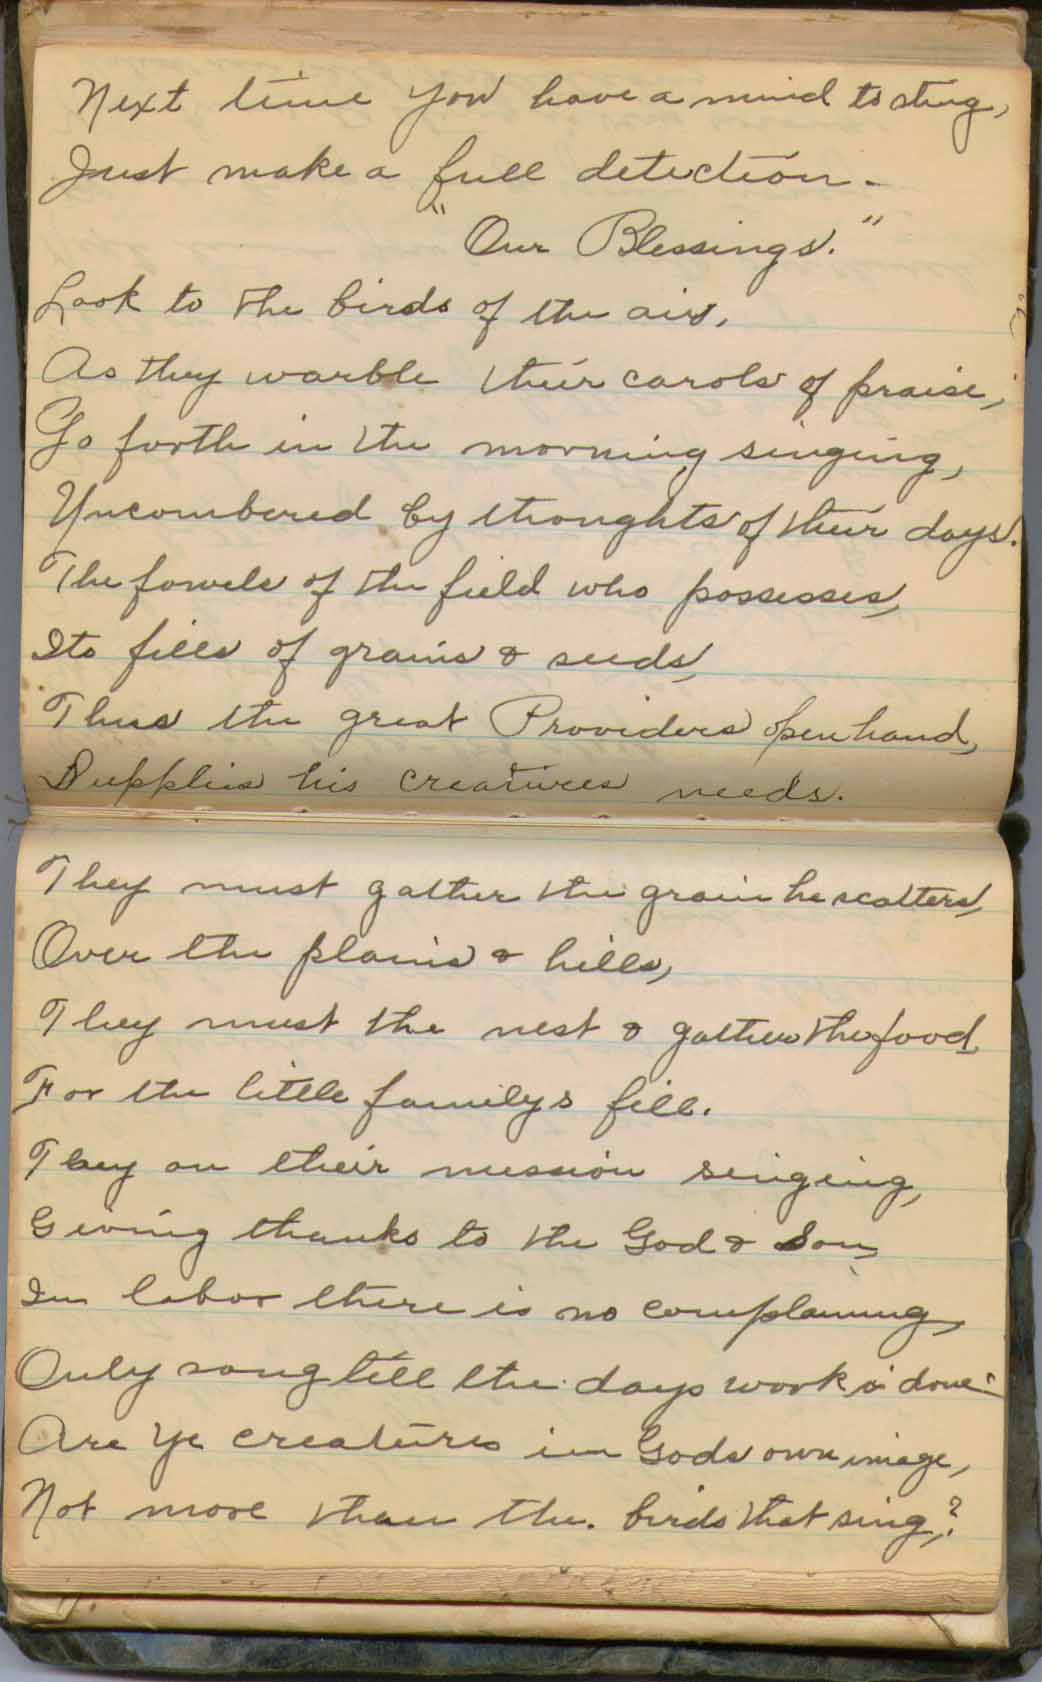 Next time you have a mind to sting,
Just make a full detection.
"Our Blessings."
Look to the birds of the air,
As they warble their carols of praise,
Go forth in the morning singing,
Uncombered by thoughts of their days.
The fowels of the field who possesses,
Its fills of grains & seeds,
Thus the great Providers open hand,
Supplies his creatures needs.
They must gather the grain he scatters,
Over the plains & hills,
They must the nest & gather the food
For the little familys fill.
They on their mission singing,
Giving thanks to the God & Son,
In labor there is no complaining,
Only song till the days work is done.
Are ye creatures in Gods own image,
Not more than the birds that sing,?